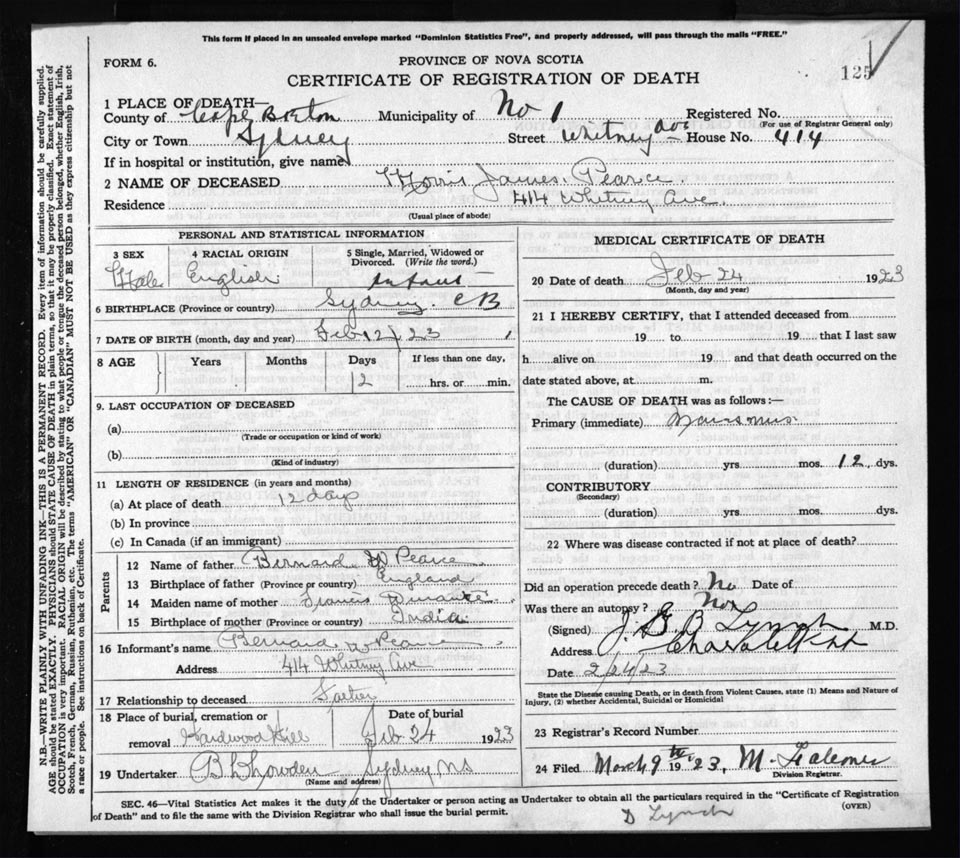 This form if placed in an unsealed envelope marked "Dominion Statistics Free", and properly addressed, will pass through the mails "FREE."
FORM 6.
PROVINCE OF NOVA SCOTIA
125
CERTIFICATE OF REGISTRATION OF DEATH
1 PLACE OF DEATH—
County of Cape Breton Municipality of No 1 Registered No.
(For use of Registrar General only)
City or Town Sydney Street Whitney Ave House No. 414
If in hospital or institution, give name
2 NAME OF DECEASED Morris James Pearce
Residence 414 Whitney Ave.
(Usual place of abode)
PERSONAL AND STATISTICAL INFORMATION
3 SEX Male
4 RACIAL ORIGIN English
5 Single, Married, Widowed or Divorced. (Write the word.) Infant
6 BIRTHPLACE (Province or country) Sydney CB
7 DATE OF BIRTH (month, day and year) Feb 12/23
8 AGE Years Months Days If less than one day,
12 hrs. or min.
9. LAST OCCUPATION OF DECEASED
(a)
(Trade or occupation or kind of work)
(b)
(Kind of industry)
11 LENGTH OF RESIDENCE (in years and months)
(a) At place of death 12 days
(b) In province
(c) In Canada (if an immigrant)
Parents
12 Name of father Bernard W Pearce
13 Birthplace of father (Province or country) England
14 Maiden name of mother Francis
15 Birthplace of mother (Province or country) India
16 Informant's name Bernard W Pearce
Address 414 Whitney Ave
17 Relationship to deceased Father
18 Place of burial, cremation or removal Hardwood Hill
Date of burial Feb 24 1923
19 Undertaker Sydney NS
(Name and address)
MEDICAL CERTIFICATE OF DEATH
20 Date of death Feb 24 1923
(Month, day and year)
21 I HEREBY CERTIFY, that I attended deceased from
19 to 19 that I last saw
h alive on 19 and that death occurred on the
date stated above, at m.
The CAUSE OF DEATH was as follows:—
Primary (immediate) Marasmus
(duration) yrs mos. 12 dys.
CONTRIBUTORY
(Secondary)
(duration) yrs mos dys.
22 Where was disease contracted if not at place of death?
Did an operation precede death? No Date of
Was there an autopsy?
(Signed) Lynch M.D.
Address
Date 2/24/23
State the Disease causing Death, or in death from Violent Causes, state (1) Means and Nature of Injury, (2) whether Accidental, Suicidal or Homicidal
23 Registrar's Record Number
24 Filed March 9th 1923, M.
Division Registrar.
SEC. 46—Vital Statistics Act makes it the duty of the Undertaker or person acting as Undertaker to obtain all the particulars required in the "Certificate of Registration
of Death" and to file the same with the Division Registrar who shall issue the burial permit.
(OVER)
D Lynch
N.B.—WRITE PLAINLY WITH UNFADING INK—THIS IS A PERMANENT RECORD. Every item of information should be carefully supplied.
AGE should be stated EXACTLY. PHYSICIANS should STATE CAUSE OF DEATH in plain terms, so that it may be properly classified. Exact statement of
OCCUPATION is very important. RACIAL ORIGIN will be described by stating to what people or tongue the deceased person belonged, whether English, Irish,
Scotch, French, German, Russian, Ruthenian, etc. The terms "AMERICAN" OR "CANADIAN" MUST NOT BE USED as they express citizenship but not
a race or people. See instructions on back of Certificate.